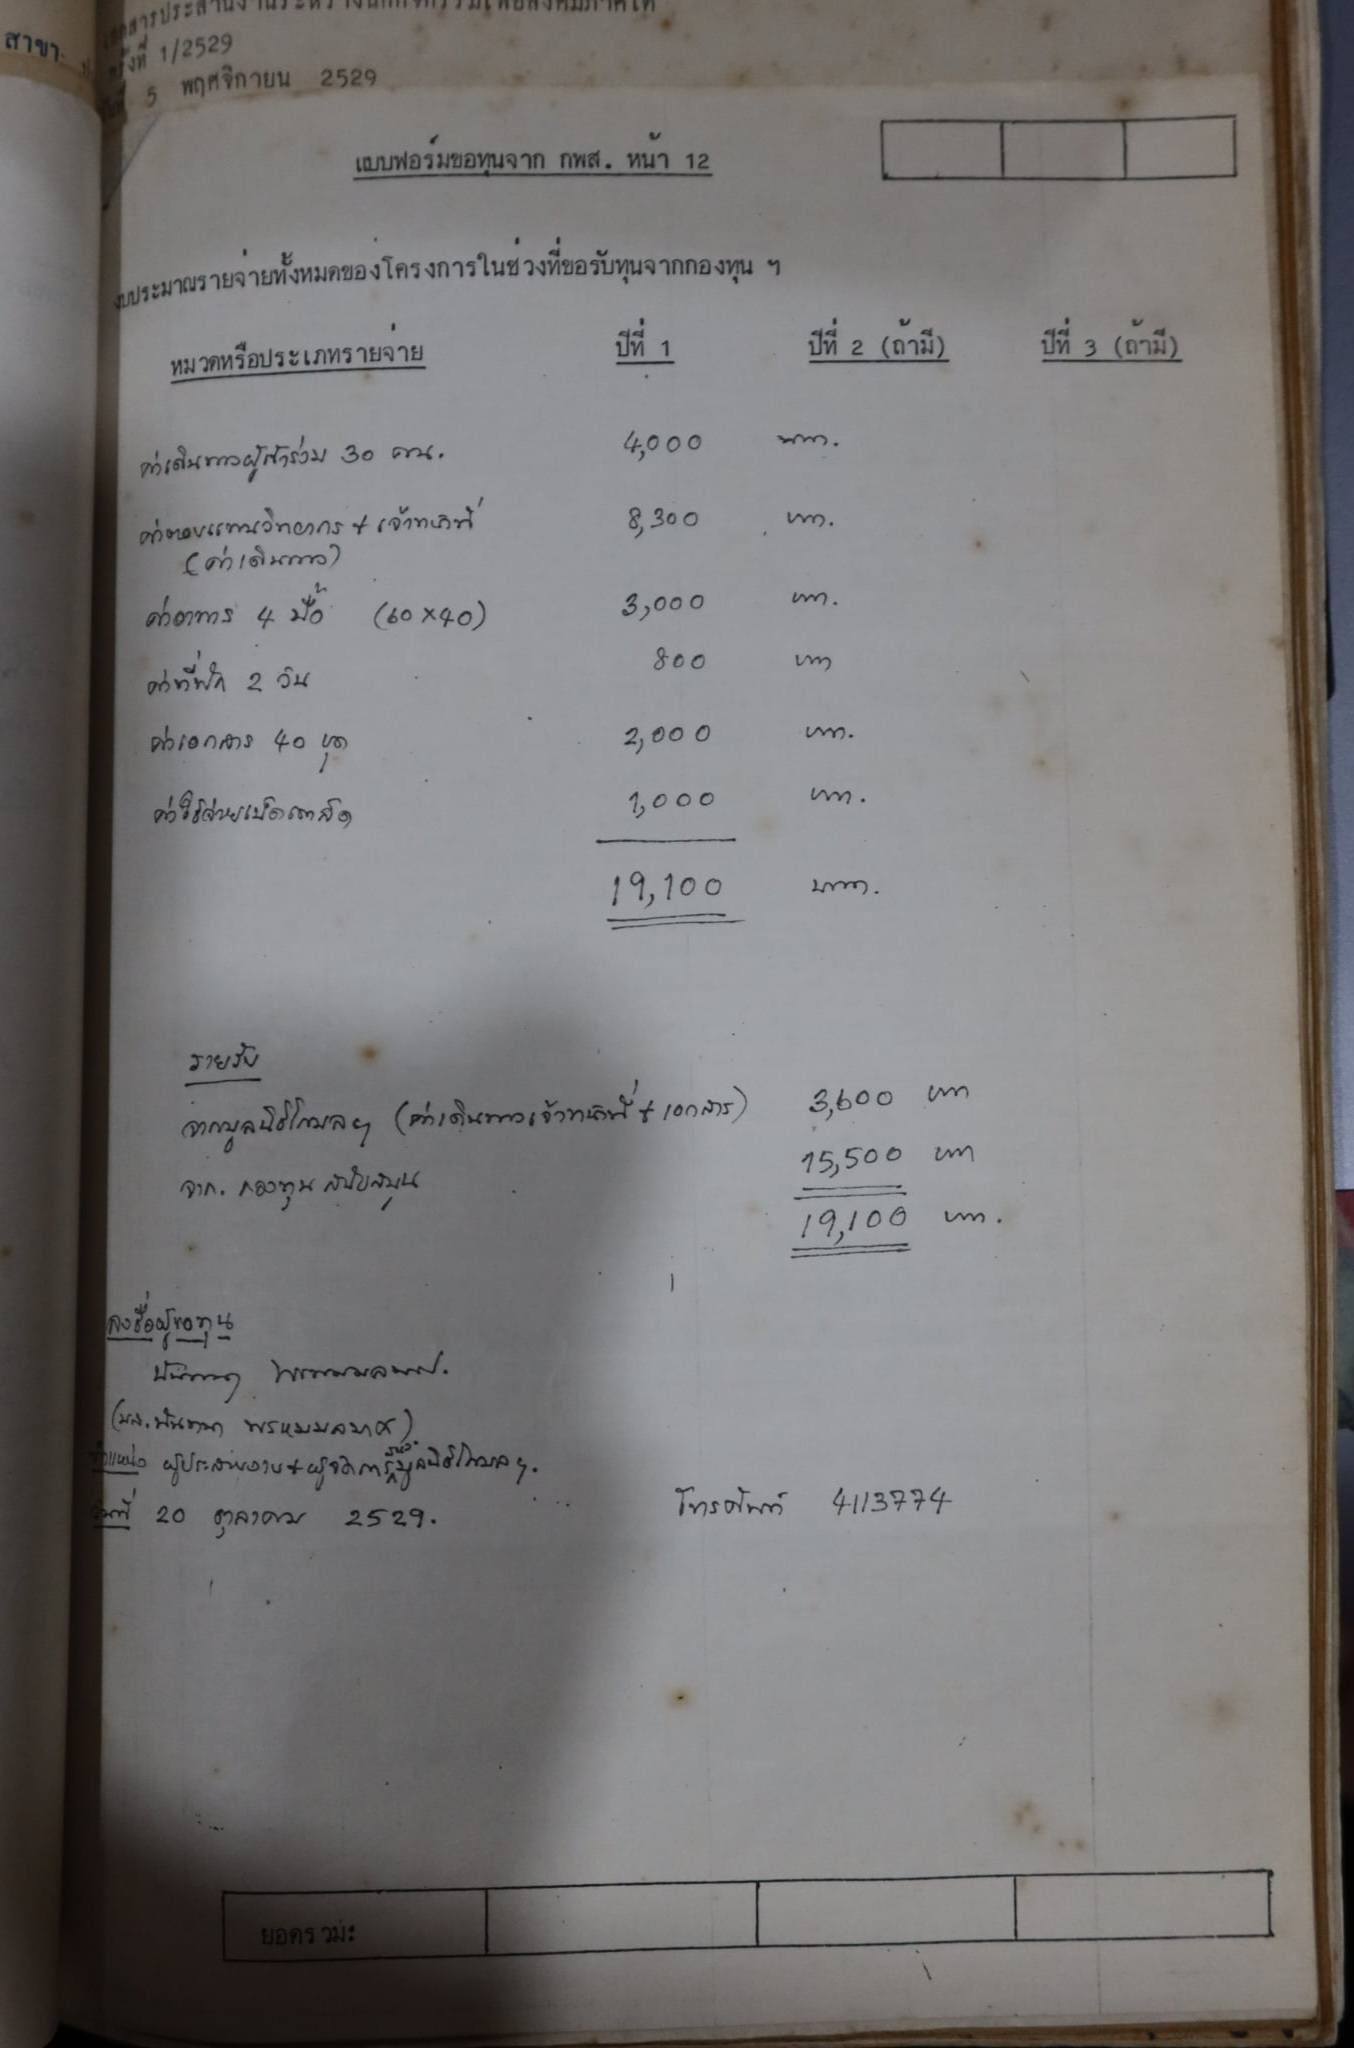 เอกสารประสานงานระหว่างนักกิจกรรมเพื่อสังคมภาคใต้
สาขา
ครั้งที่ 1/2529
วันที่ 5 พฤศจิกายน 2529
แบบฟอร์มขอทุนจาก กพส. หน้า 12
งบประมาณรายจ่ายทั้งหมดของโครงการในช่วงที่ขอรับทุนจากกองทุน ฯ
หมวดหรือประเภทรายจ่าย ปีที่ 1 ปีที่ 2 (ถ้ามี) ปีที่ 3 (ถ้ามี)
ค่าเดินทางผู้เข้าร่วม 30 คน. 4,000 บาท.
ค่าตอบแทนวิทยากร + เจ้าหน้าที่ 8,300 บาท.
(ค่าเดินทาง)
ค่าอาหาร 4 มื้อ (60×40) 3,000 บาท.
ค่าที่พัก 2 วัน 800 บาท
ค่าเอกสาร 40 ชุด 2,000 บาท.
ค่าใช้จ่ายเบ็ดเตล็ด 1,000 บาท.
19,100 บาท.
รายรับ
จากมูลนิธิโกมลฯ (ค่าเดินทางเจ้าหน้าที่ + เอกสาร) 3,600 บาท
จาก. กองทุนสนับสนุน 15,500 บาท
19,100 บาท.
ลงชื่อผู้ขอทุน
(นส.นันทนา พรหมมลมาศ)
ตำแหน่ง ผู้ประสานงาน + ผู้จัดการมูลนิธิโกมลฯ.
วันที่ 20 ตุลาคม 2529. โทรศัพท์ 4113774
ยอดรวม: